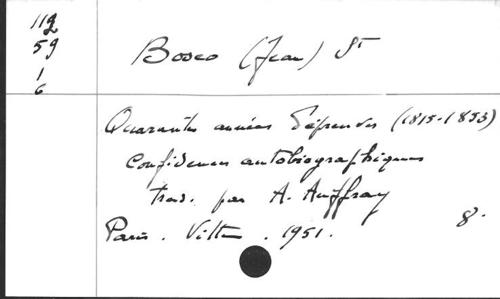 112
59
1
6
Bosco (Jean) St
Quarante années d'épreuves (1815-1855)
Confidences autobiographiques
trad. par A. Auffray
Paris. Vitte. 1951. 8°